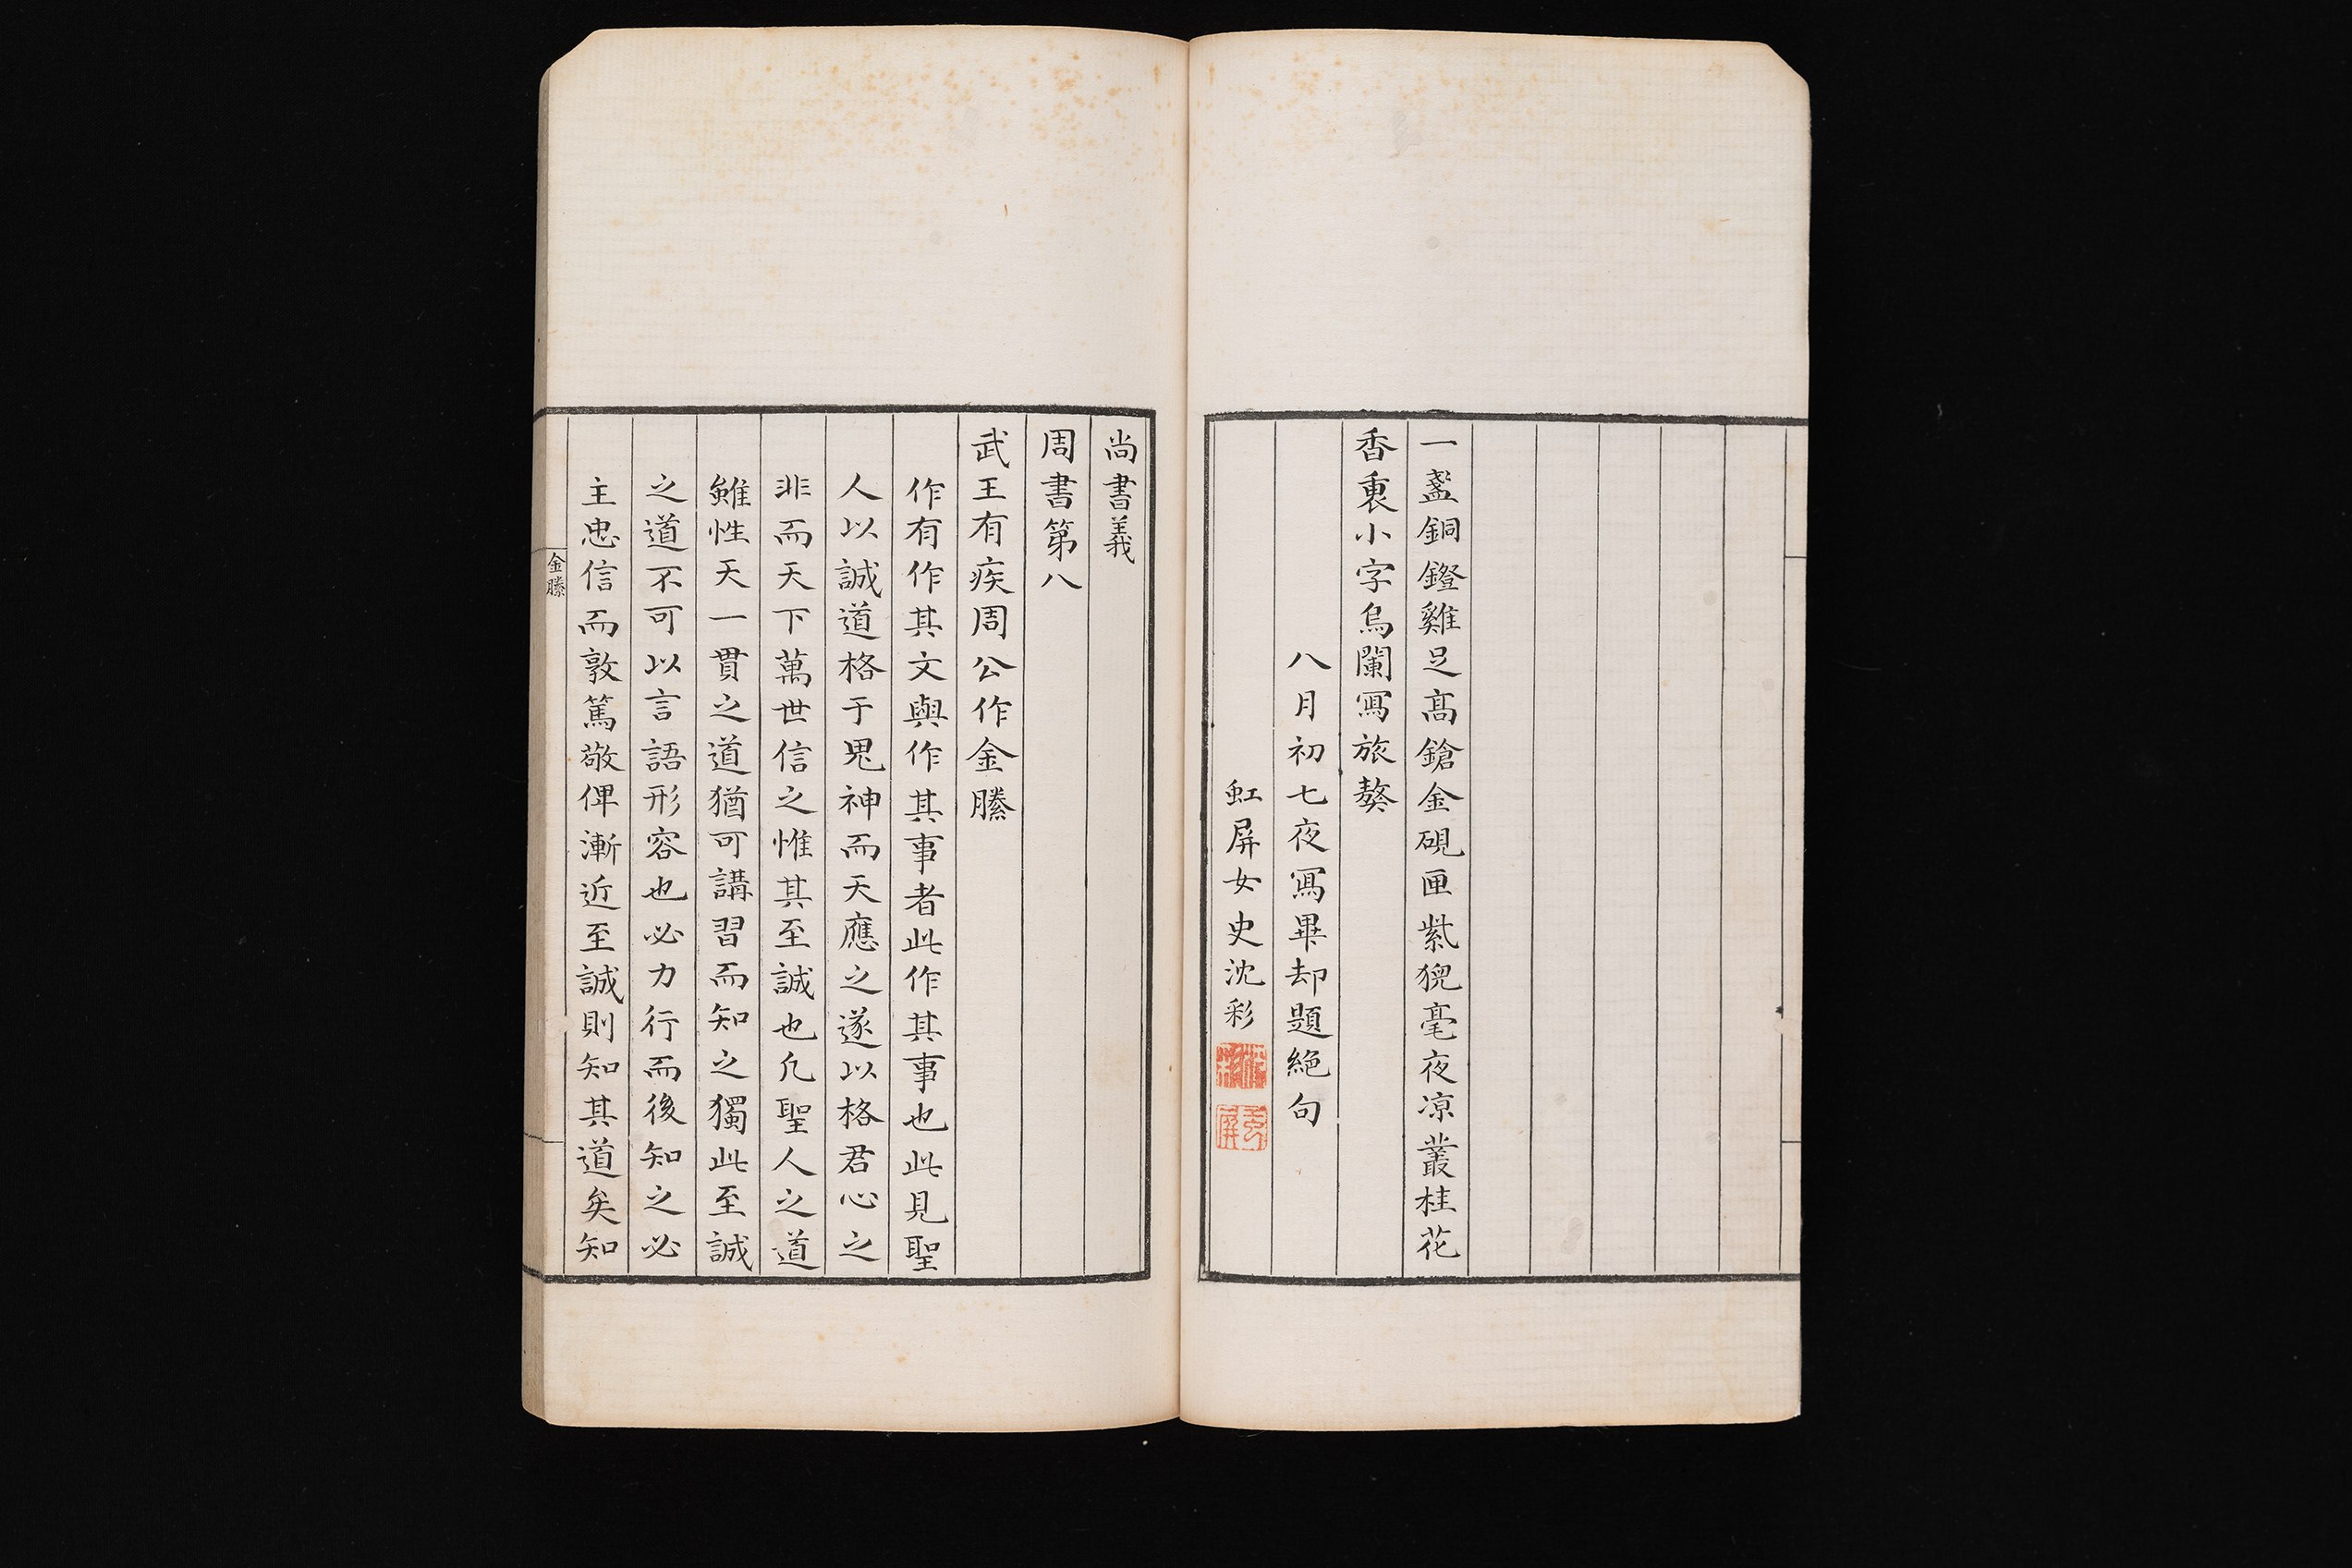 一盞銅鐙雞足髙鎗金硯匣紫猊毫夜凉叢桂花
香裏小字烏闌寫旅獒
八月初七夜寫畢却題絕句
虹屏女史沈彩
尚書義
周書第八
武王有疾周公作金縢
作有作其文與作其事者此作其事也此見聖
人以誠道格于鬼神而天應之遂以格君心之
非而天下萬世信之惟其至誠也凢聖人之道
雖性天一貫之道猶可講習而知之獨此至誠
之道不可以言語形容也必力行而後知之必
主忠信而敦篤敬俾漸近至誠則知其道矣知
金縢